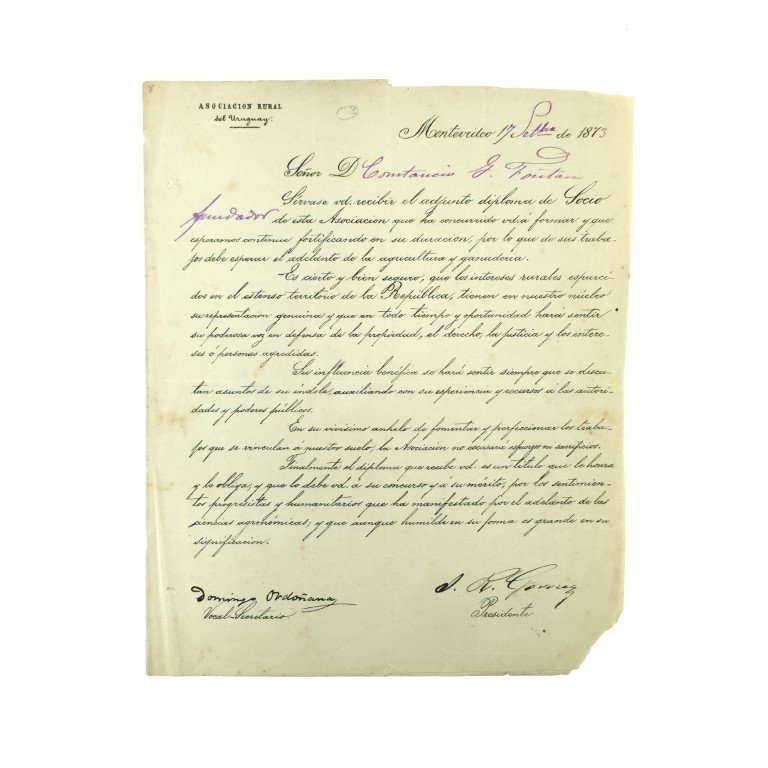 8
3
ASOCIACION RURAL
del Uruguay.
Montevideo 17 Setbre de 1873
Señor D Constancio G. Fontan
Sírvase vd. recibir el adjunto diploma de Socio
fundador de esta Asociacion que ha concurrido vd á formar y que
esperamos continue fortificando en su duracion, por lo que de sus traba-
jos debe esperar el adelanto de la agricultura y ganaderia.
Es cierto y bien seguro, que los intereses rurales esparci-
dos en el estenso territorio de la República, tienen en nuestro núcleo
su representacion genuina y que en todo tiempo y oportunidad hará sentir
su poderosa voz en defensa de la propiedad, el derecho, la justicia y los intere-
ses ó personas agredidas.
Su influencia benéfica se hará sentir siempre que se discu-
tan asuntos de su índole, auxiliando con su esperiencia y recursos á las autori-
dades y poderes públicos.
En su vivisimo anhelo de fomentar y perfeccionar los traba-
jos que se vinculan á nuestro suelo, la Asociacion no escusará esfuerzos ni sacrificios.
Finalmente el diploma que recibe vd. es un titulo que le honra
y le obliga, y que lo debe vd. á su concurso y á su mérito, por los sentimien-
tos progresistas y humanitarios que ha manifestado por el adelanto de las
ciencias agronómicas; y que aunque humilde en su forma es grande en su
significacion.
Domingo Ordoñana
Vocal-Secretario
J. R. Gomez
Presidente